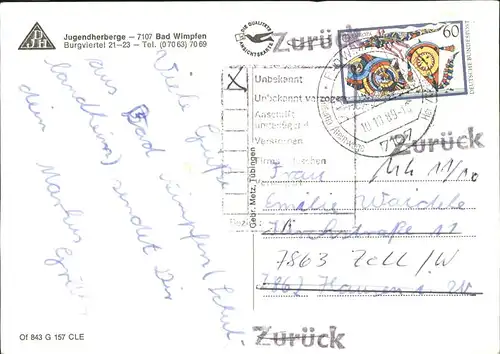 Jugendherberge – 7107 Bad Wimpfen
Burgviertel 21–23 – Tel. (0 70 63) 70 69
DIE QUALITÄTS
ANSICHTSKARTE
Zurück
60
DEUTSCHE BUNDESPOST
10.10.89
7107
Unbekannt
Unbekannt verzogen
Annahme
verweigert
Verstorben
Firma erloschen
Zurück
Viele Grüße
aus Bad Wimpfen (Schul-
landheim) sendet Dir
dein Markus
Gebr. Metz, Tübingen
Frau
Emilie
11
7863 Zell / W
7862 Hausen i. W
Zurück
Of 843 G 157 CLE